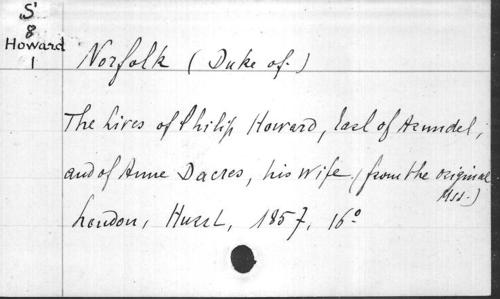 S'
8
Howard
1
Norfolk (Duke of.)
The Lives of Philip Howard, Earl of Arundel,
and of Anne Dacres, his Wife, (from the original
Mss.)
London, Hurst, 1857, 16°